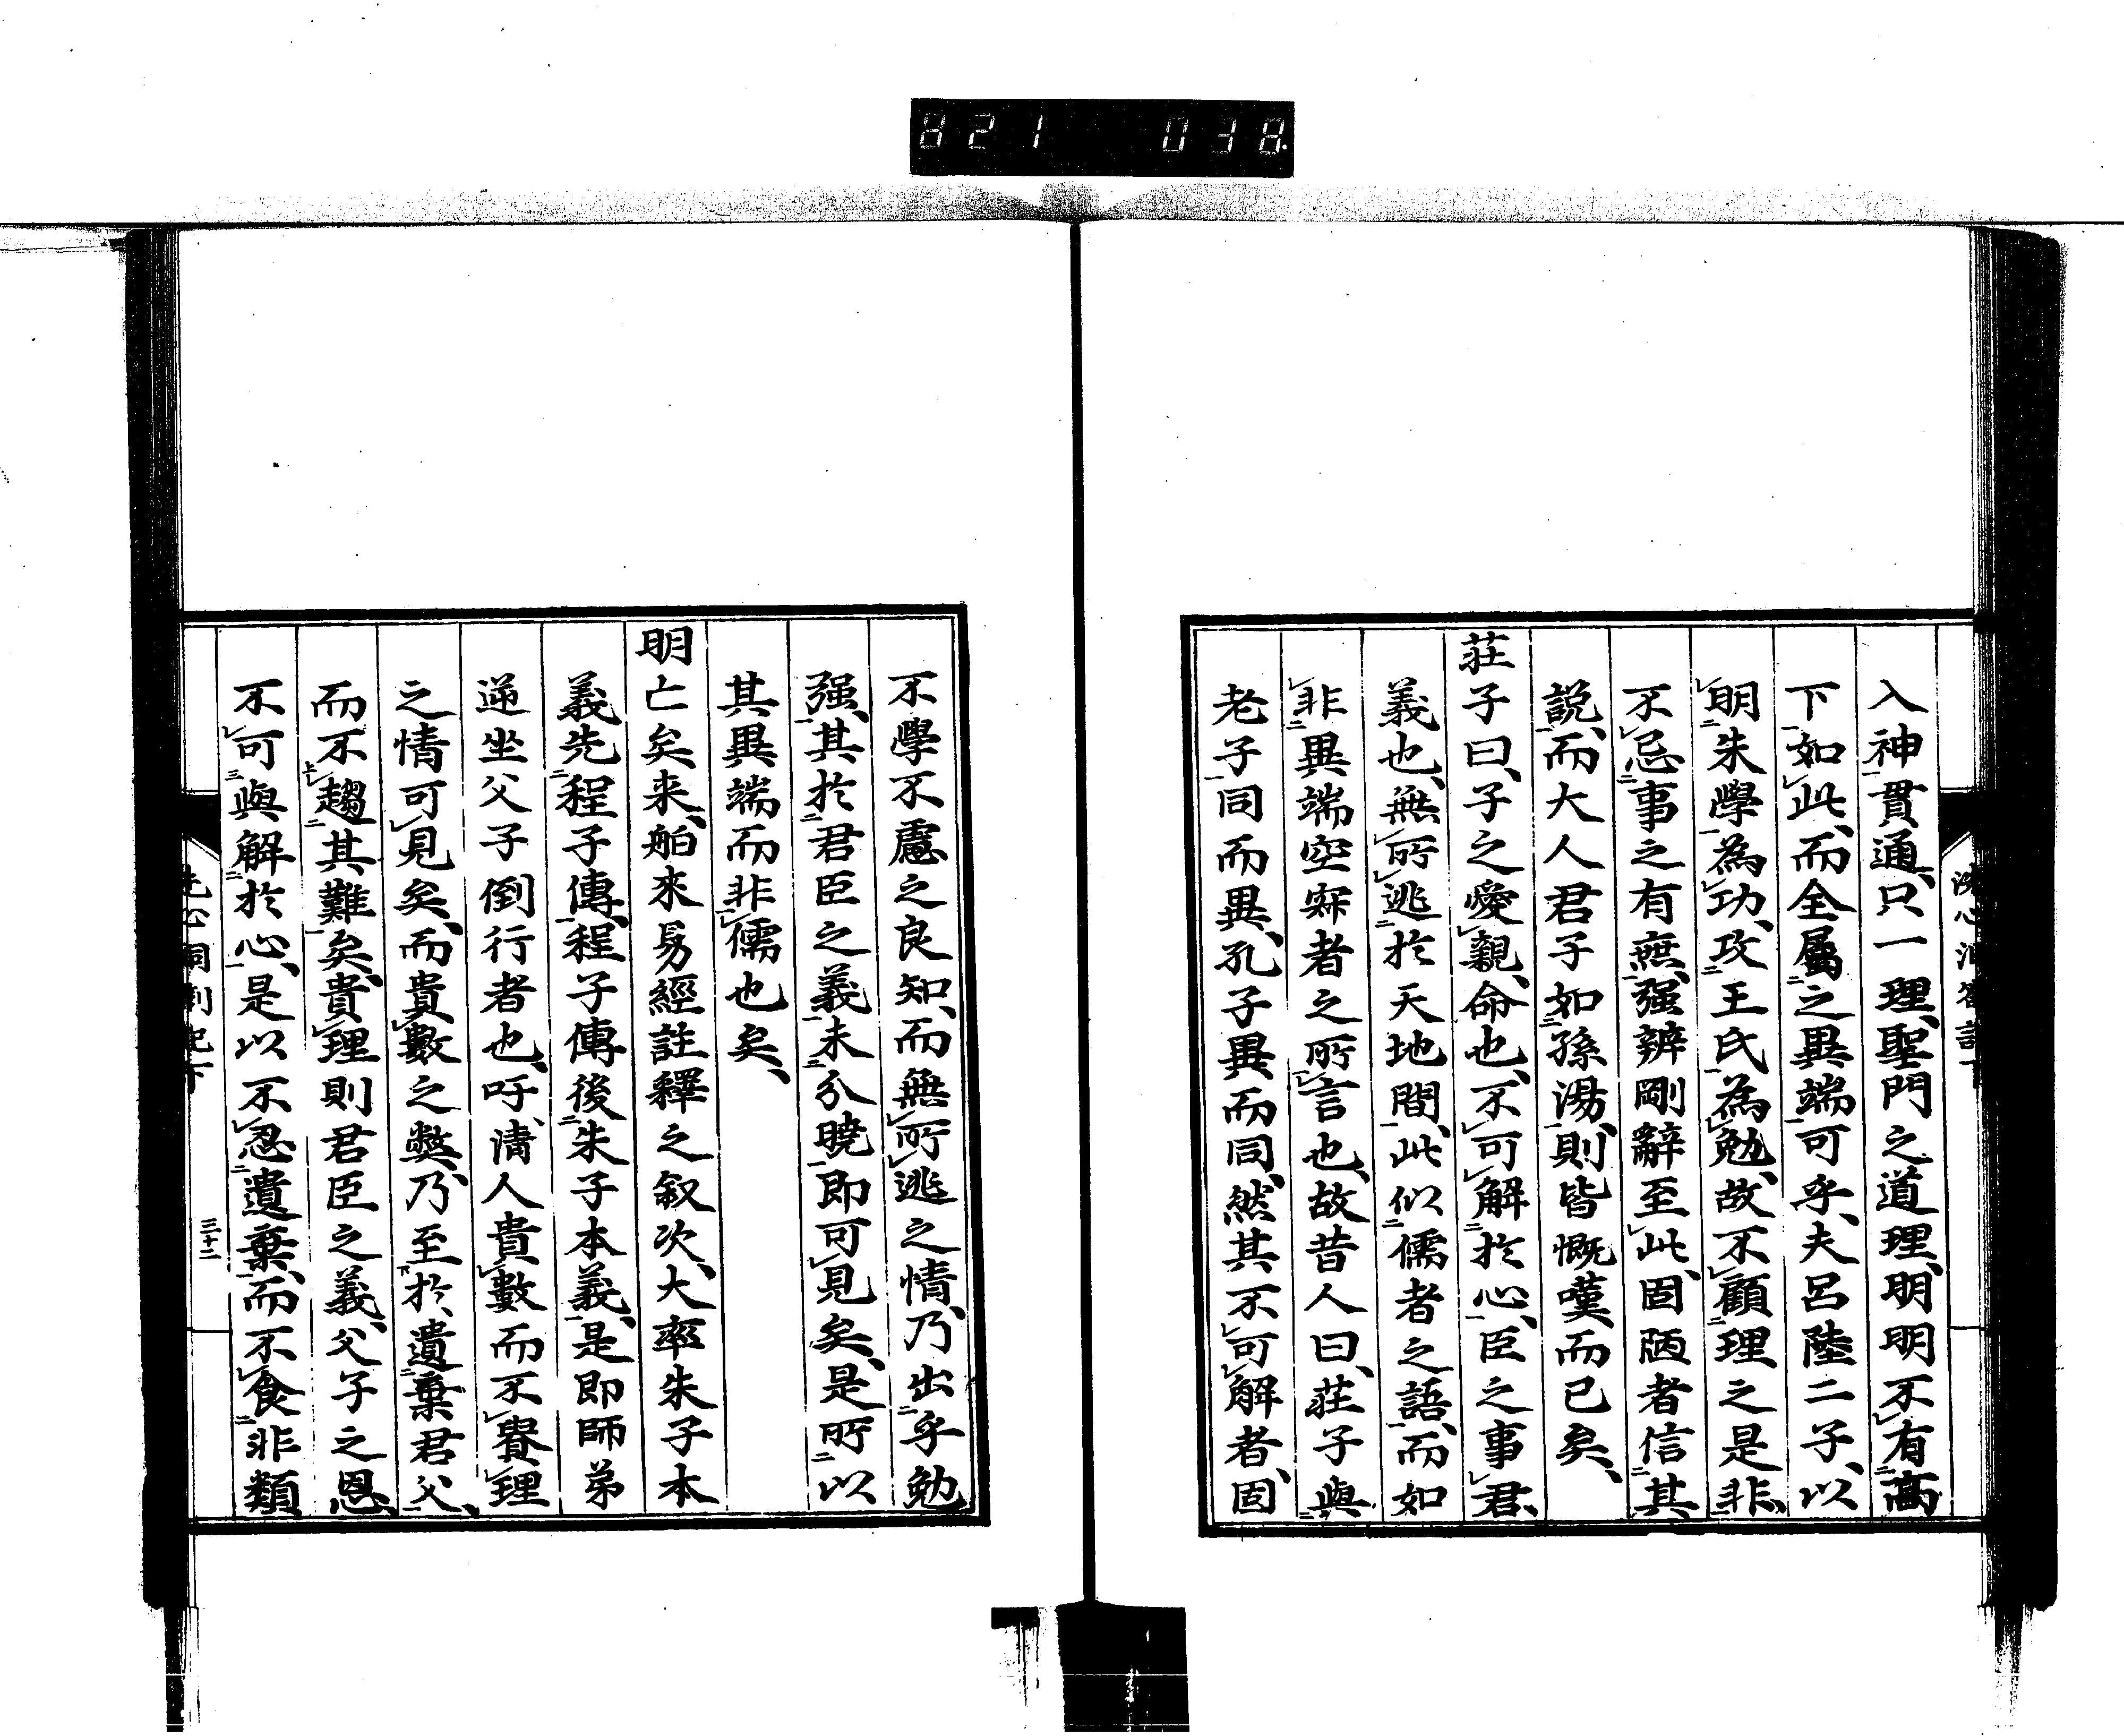 821 038
入神貫通、只一理、聖門之道理、明明不有高
下如此、而全屬之異端可乎、夫呂陸二子、以
明朱學為功、攻王氏為勉、故不顧理之是非、
不忌事之有無、强辨剛辭至此、固陋者信其
說、而大人君子如孫湯、則皆慨嘆而已矣、
莊子曰、子之愛親、命也、不可解於心、臣之事君、
義也、無所逃於天地間、此似儒者之語、而如
非異端空寂者之所言也、故昔人曰、莊子與
老子同而異、孔子異而同、然其不可解者、固
不學不慮之良知、而無所逃之情、乃出乎勉
强、其於君臣之義未分曉、即可見矣、是所以
其異端而非儒也矣、
明亡矣来、舶來易經註釋之叙次、大率朱子本
義先程子傳、程子傳後朱子本義、是即師弟
逆坐父子倒行者也、吁、清人貴數而不賤理
之情可見矣、而貴數之弊、乃至於遺棄君父、
而不趨其難矣、貴理則君臣之義、父子之恩、
不可與解於心、是以不忍遺棄、而不食非類
三十二